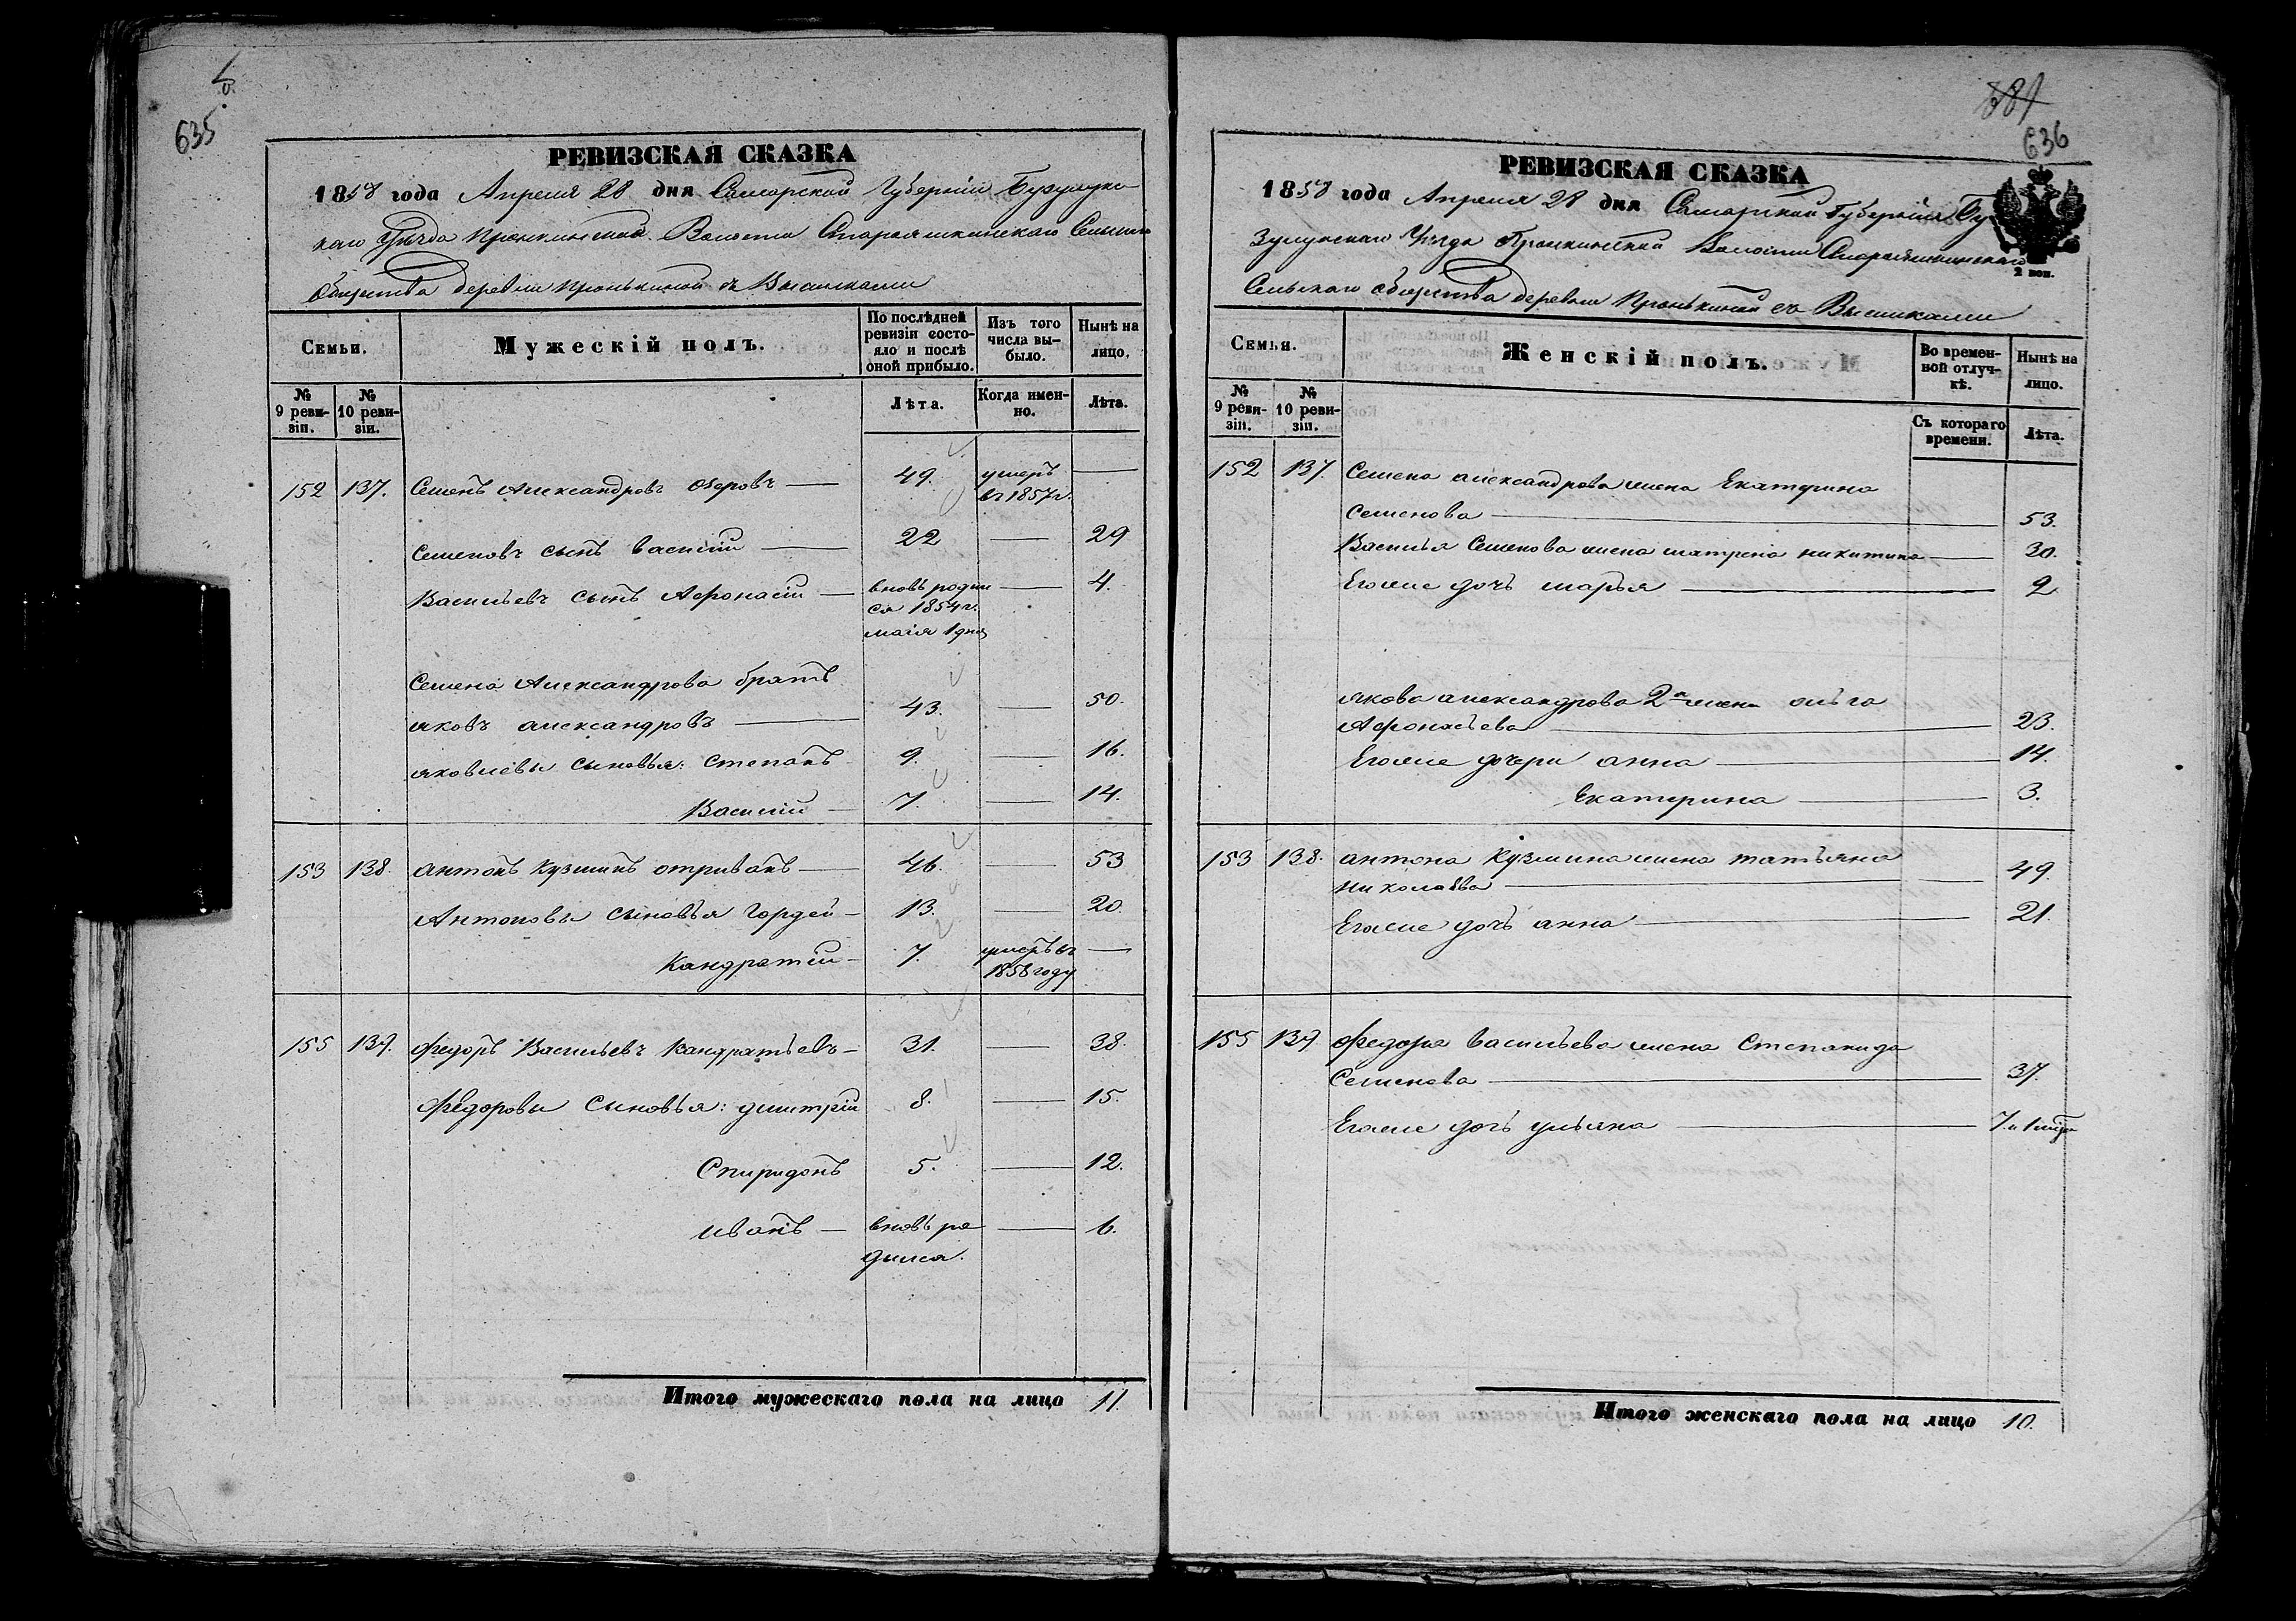 635
РЕВИЗСКАЯ СКАЗКА
1858 года Апреля 28 дня Самарской Губерніи Бузулукс
каго Уѣзда Пронкинской Волости Староашкинскаго Сельскаго
общества деревни Пронькиной съ Выселками
Семьи.
Мужескій полъ.
По послѣдней ревизіи состояло и послѣ оной прибыло.
Изъ того числа выбыло.
Нынѣ на лицо.
№ 9 ревизіи.
№ 10 ревизіи.
Лѣта.
Когда именно.
Лѣта.
152 137. Семенъ Александровъ 49. умеръ въ 1857 г. —
Семеновъ сынъ Василій — 22 — 29
Васильевъ сынъ Афонасій — вновь родил — 4.
ся 1854 г.
маія 1 дня
Семена Александрова братъ
яковъ александровъ — 43. — 50.
яковлевы сыновья: Степанъ 9. — 16.
Василий — 7. — 14.
153 138. антонъ Кузминъ — 46. — 53
Антоновы сыновья Гордей — 13. — 20.
Кандратій — 7. умеръ въ —
1858 году
155 139. Федоръ Васильевъ Кандратьевъ — 31. — 38.
Федоровы Сыновья: дмитрій 8. — 15.
Спиридонъ 5. — 12.
иванъ — вновь ро — 6.
дился.
Итого мужескаго пола на лицо 11.
581
636
РЕВИЗСКАЯ СКАЗКА
1858 года Апреля 28 дня Самарской Губерніи Бу
зулукскаго Уѣзда Пронкинской Волости Староашкинскаго
2 коп.
Сельскаго общества деревни Пронькиной съ Выселками
Семьи.
Женскій полъ.
Во временной отлучкѣ.
Нынѣ на лицо.
№ 9 ревизіи.
№ 10 ревизіи.
Съ котораго времени.
Лѣта.
152 137. Семена александрова жена Екатерина
Семенова — 53.
Василья Семенова жена матрена никитина — 30.
Егоже дочь марья — 2
якова александрова 2я жена ольга
Афонасьева — 23.
Егоже дочери анна — 14.
Екатерина — 3.
153 138. антона Кузмина жена татьяна
николаева — 49.
Егоже дочь анна — 21.
155 139 Федора васильева жена Степанида
Семенова — 37.
Егоже дочь ульяна — 7. и 1 мѣся
Итого женскаго пола на лицо 10.